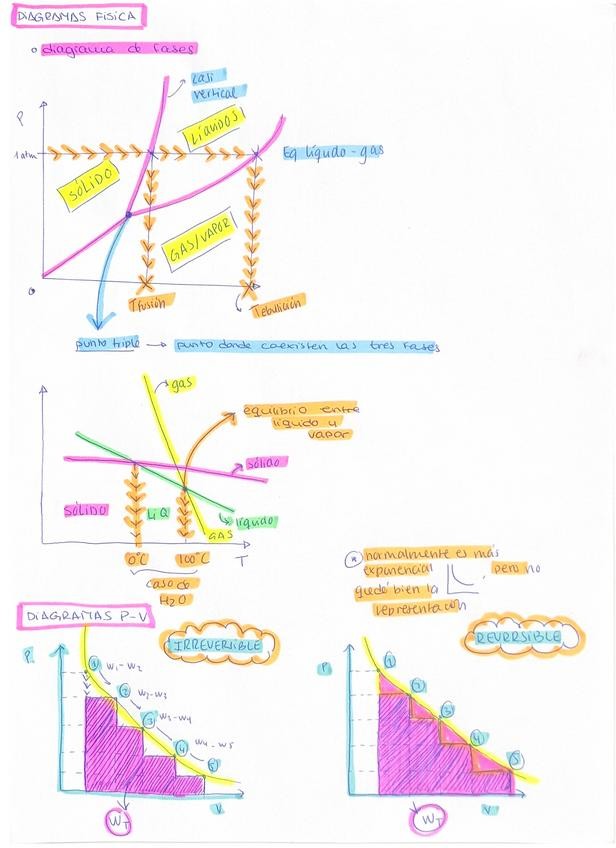 DIAGRAMAS FÍSICA
diagrama de fases
casi
vertical
P
LÍQUIDOS
1 atm
Eq líquido - gas
SÓLIDO
GAS/VAPOR
0
Tfusión
Tebullición
punto triple → punto donde coexisten las tres fases
gas
equilibrio entre
líquido y
vapor
sólido
SÓLIDO
LIQ
líquido
GAS
0°C
100°C
T
caso de
H2O
* normalmente es más
exponencial
pero no
quedé bien la
representación
DIAGRAMAS P-V
IRREVERSIBLE
P
1
W1-W2
2
W2-W3
3
W3-W4
4
W4-W5
5
V
WT
REVERSIBLE
P
1
2
3
4
5
V
WT